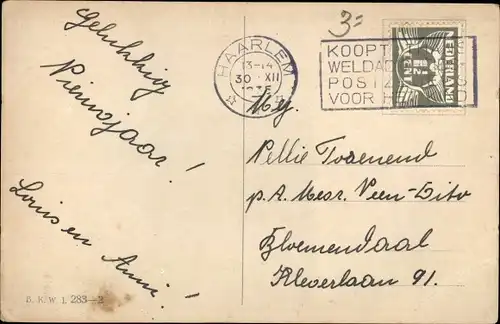 Gelukkig
Nieuwjaar!
Louis en Annie!
B. K. W. I. 283-3
3=
HAARLEM
13-14
30 XII
1935
KOOPT
WELDA
POSTZ
VOOR HE
NEDERLAND
1½
CENT
Mej.
Nellie Torenend
p.a. Mevr. Veen-Dito
Bloemendaal
Kleverlaan 91.